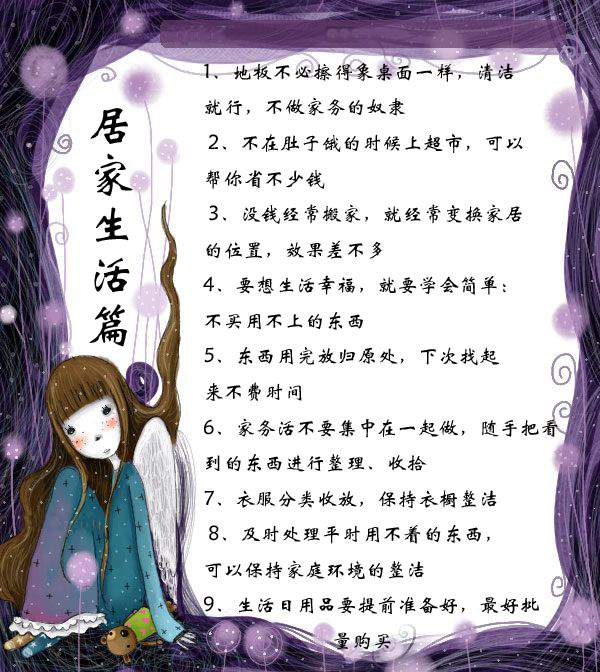 居家生活篇
1、地板不必擦得象桌面一样，清洁
就行，不做家务的奴隶
2、不在肚子饿的时候上超市，可以
帮你省不少钱
3、没钱经常搬家，就经常变换家居
的位置，效果差不多
4、要想生活幸福，就要学会简单：
不买用不上的东西
5、东西用完放归原处，下次找起
来不费时间
6、家务活不要集中在一起做，随手把看
到的东西进行整理、收拾
7、衣服分类收放，保持衣橱整洁
8、及时处理平时用不着的东西，
可以保持家庭环境的整洁
9、生活日用品要提前准备好，最好批
量购买